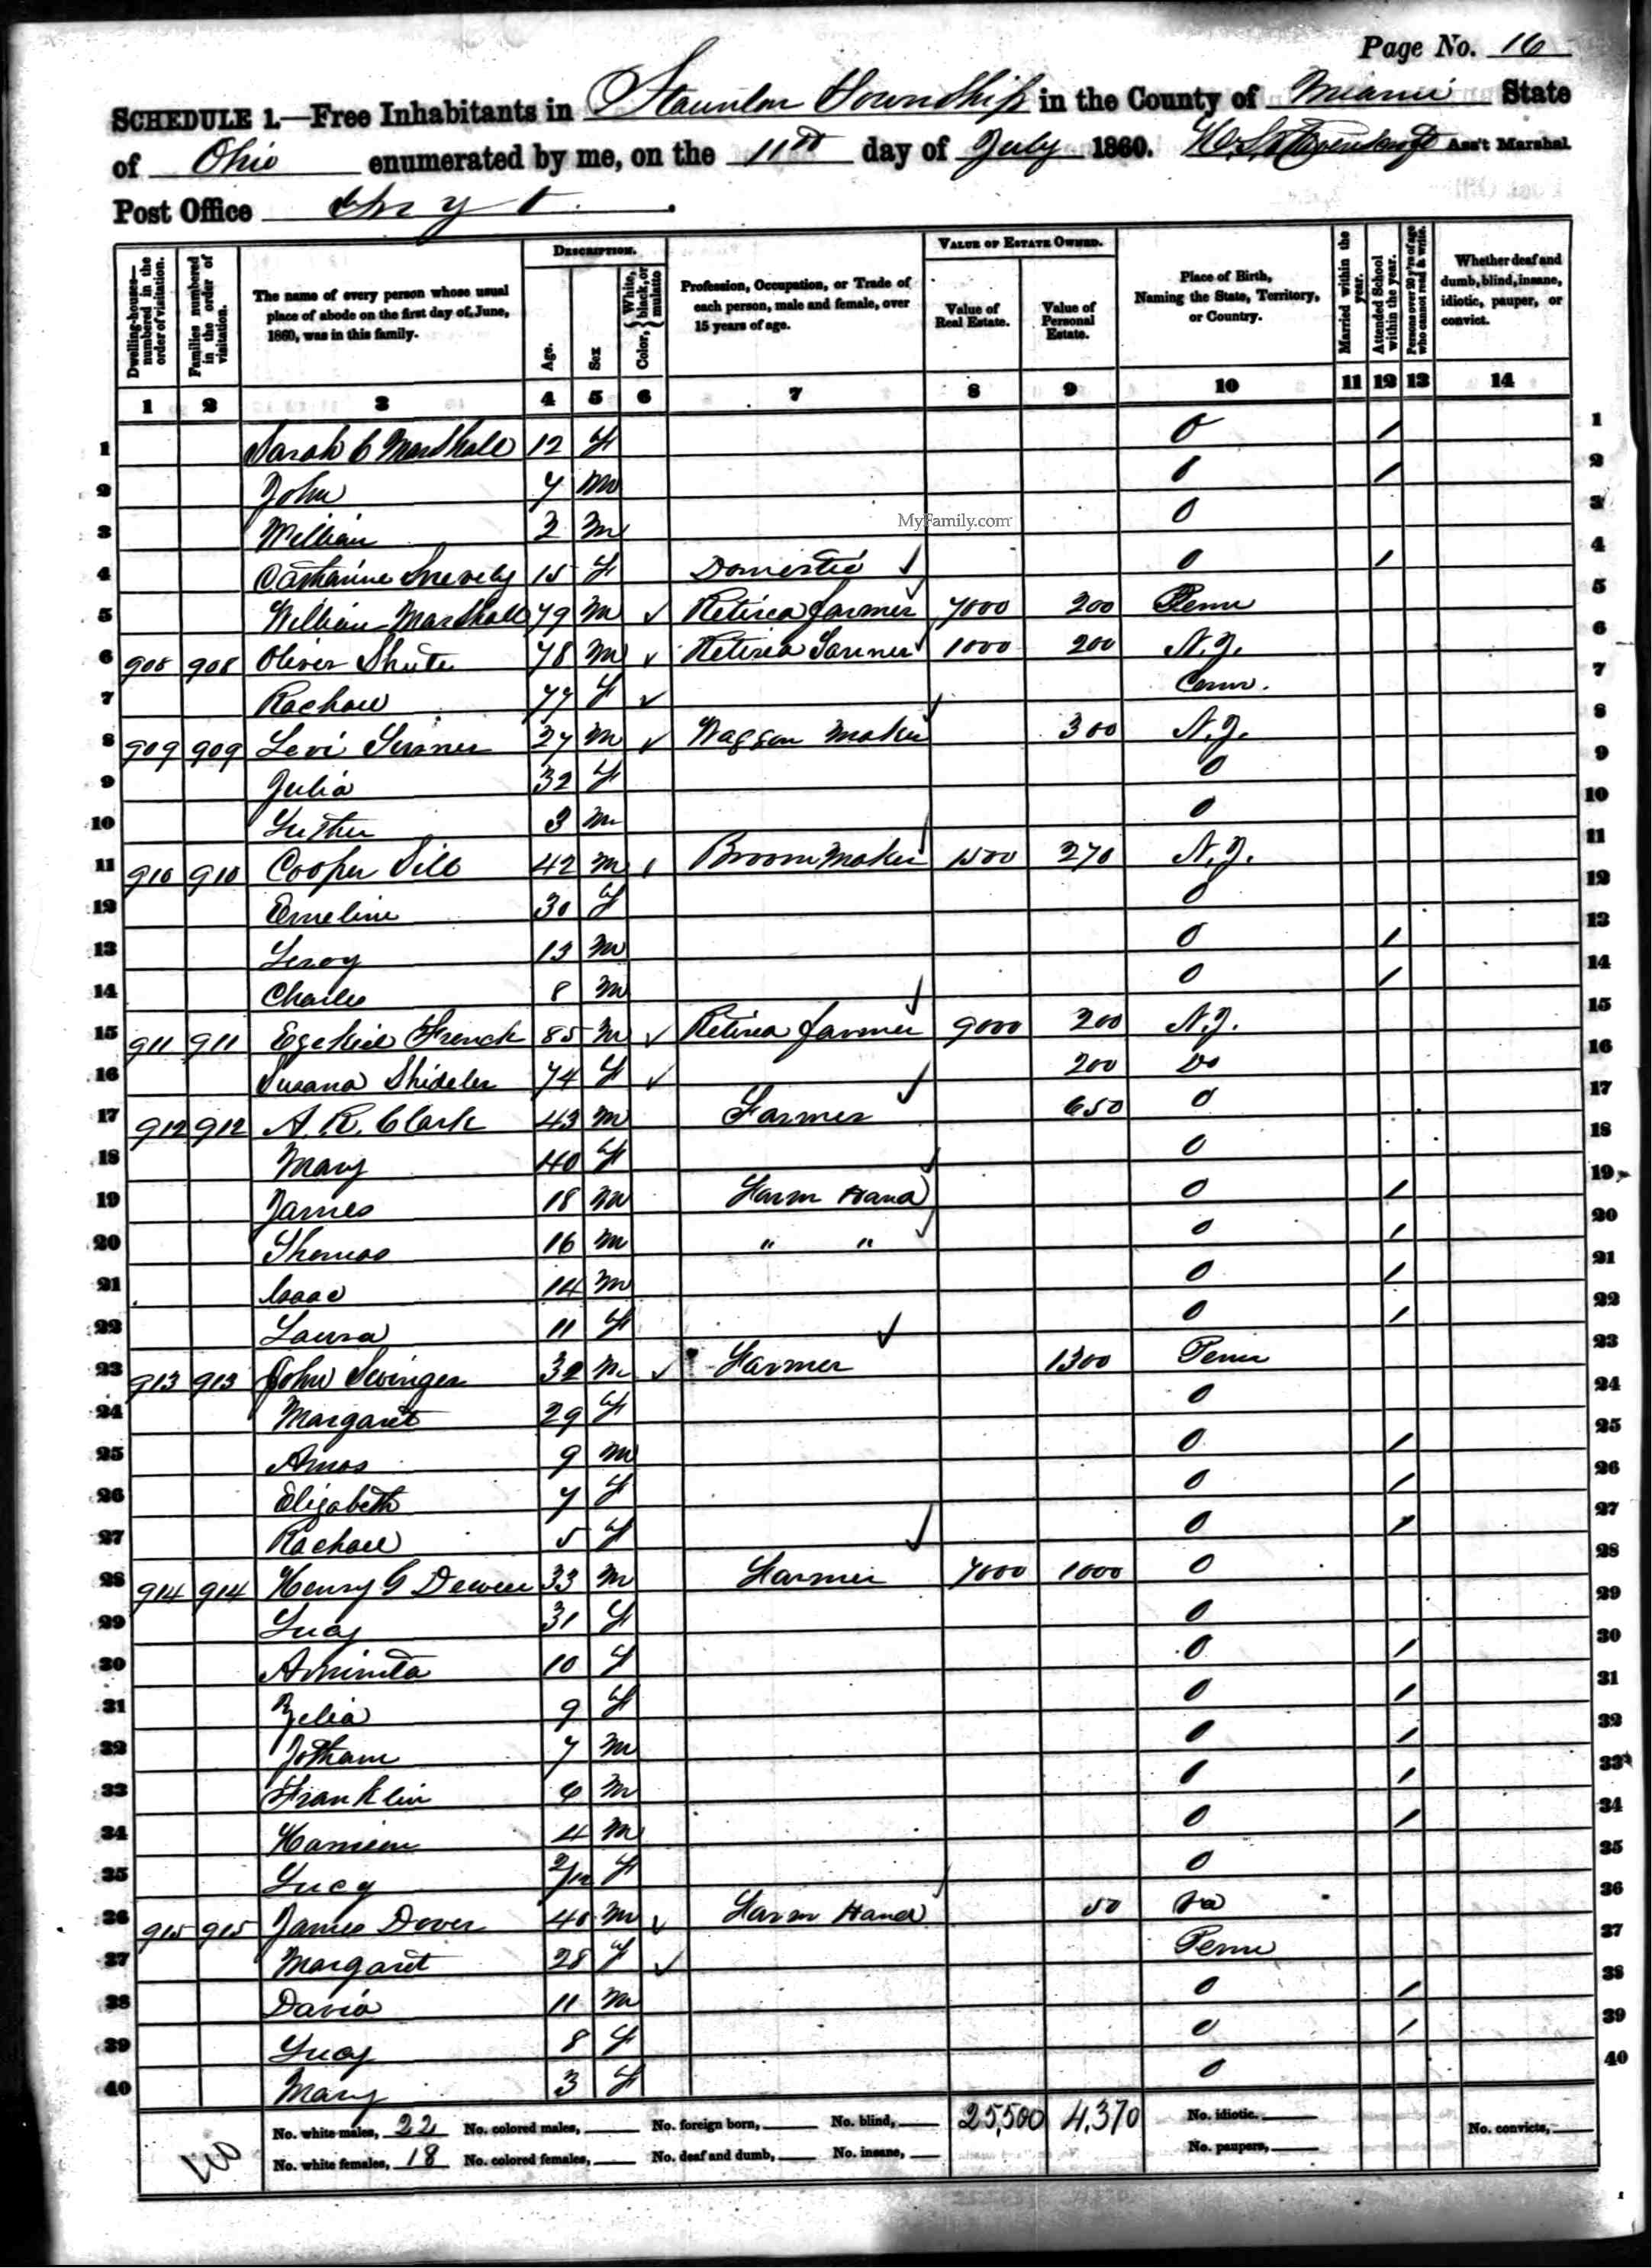 Page No. 16
SCHEDULE 1.—Free Inhabitants in Staunton Township in the County of Miami State
of Ohio enumerated by me, on the 11th day of July 1860. Ass't Marshal
Post Office
DESCRIPTION. VALUE OF ESTATE OWNED.
Dwelling-houses—numbered in the order of visitation. Families numbered in the order of visitation. The name of every person whose usual place of abode on the first day of June, 1860, was in this family. Age. Sex Color, { White, black, or mulatto Profession, Occupation, or Trade of each person, male and female, over 15 years of age. Value of Real Estate. Value of Personal Estate. Place of Birth, Naming the State, Territory, or Country. Married within the year. Attended School within the year. Persons over 20 y'rs of age who cannot read & write. Whether deaf and dumb, blind, insane, idiotic, pauper, or convict.
1 2 3 4 5 6 7 8 9 10 11 12 13 14
1 Sarah C Marshall 12 f O / 1
2 John 7 m O / 2
MyFamily.com
3 William 2 m O 3
4 Catharine 15 f Domestic O / 4
5 William Marshall 79 m Retired farmer 7000 200 Penn 5
6 908 908 Oliver Shute 78 m Retired Farmer 1000 200 N.J. 6
7 Rachael 77 f Conn. 7
8 909 909 Levi 27 m Waggon Maker 300 N.J. 8
9 Julia 32 f O 9
10 Luther 3 m O 10
11 910 910 Cooper 42 m Broom Maker 1500 270 N.J. 11
12 Emeline 30 f O 12
13 Leroy 13 m O / 13
14 Charles 8 m O / 14
15 911 911 Ezekiel French 85 m Retired farmer 9000 200 N.J. 15
16 Susana Shideler 74 f 200 Do 16
17 912 912 A. R. Clark 43 m Farmer 650 O 17
18 Mary 40 f O 18
19 James 18 m Farm Hand O / 19
20 Thomas 16 m " " O / 20
21 Isaac 14 m O / 21
22 Laura 11 f O / 22
23 913 913 John Swinger 32 m Farmer 1300 Penn 23
24 Margaret 29 f O 24
25 Amos 9 m O / 25
26 Elizabeth 7 f O / 26
27 Rachael 5 f O / 27
28 914 914 Henry G Deweese 33 m Farmer 7000 1000 O 28
29 Lucy 31 f O 29
30 Aminta 10 f O / 30
31 Zelia 9 f O / 31
32 Jotham 7 m O / 32
33 Franklin 6 m O / 33
34 4 m O / 34
35 Lucy 2/12 f O 35
36 915 915 James Dover 40 m Farm Hand 50 Va 36
37 Margaret 28 f Penn 37
38 David 11 m O / 38
39 Lucy 8 f O / 39
40 Mary 3 f O 40
No. white males, 22 No. colored males, No. foreign born, No. blind, 25,500 4,370 No. idiotic. No. convicts,
No. white females, 18 No. colored females, No. deaf and dumb, No. insane, No. paupers,